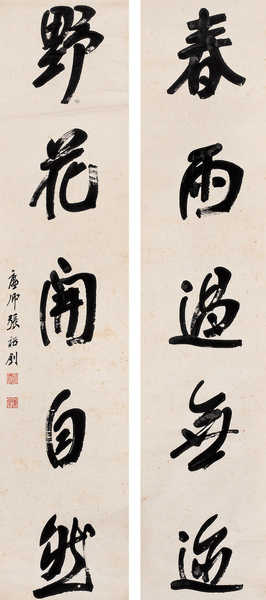 春雨過無迹
野花開自然
廉卿張裕釗